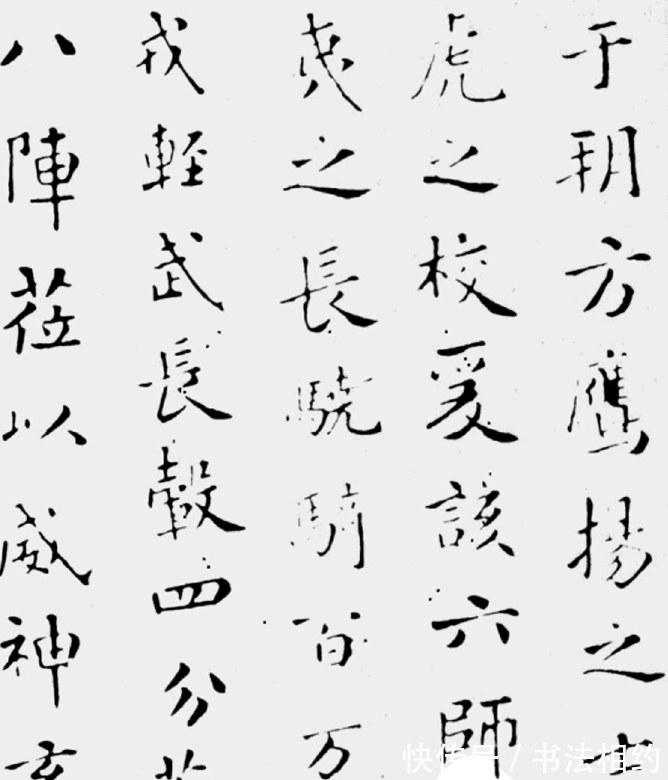 于朔方鷹揚之
虎之校爰該六師
羌之長驍騎百万
戎輕武長轂四分
八陣莅以威神玄
快传号 / 书法相约